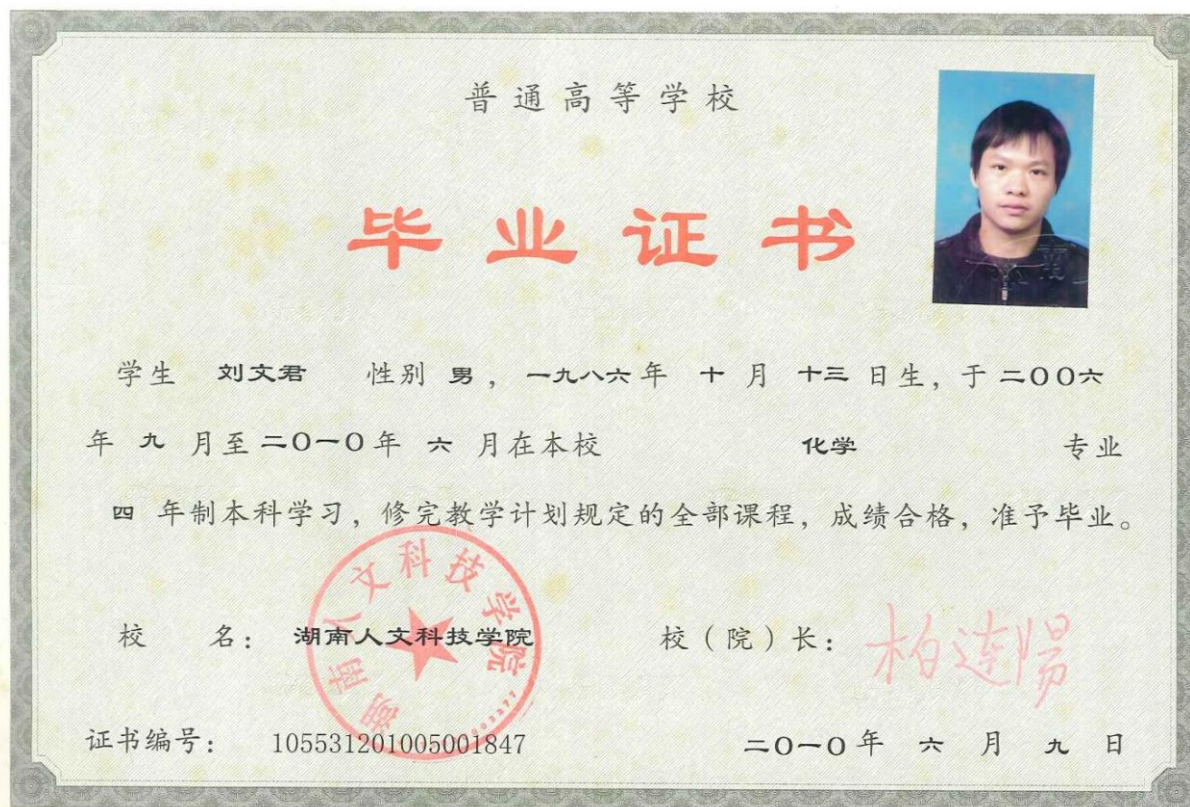 普通高等学校
毕业证书
学生 刘文君 性别 男，一九八六年 十 月 十三 日生，于 二〇〇六
年 九 月至 二〇一〇 年 六 月在本校 化学 专业
四 年制本科学习，修完教学计划规定的全部课程，成绩合格，准予毕业。
湖南人文科技学院
校 名： 湖南人文科技学院 校（院）长： 柏连阳
证书编号： 105531201005001847 二〇一〇 年 六 月 九 日